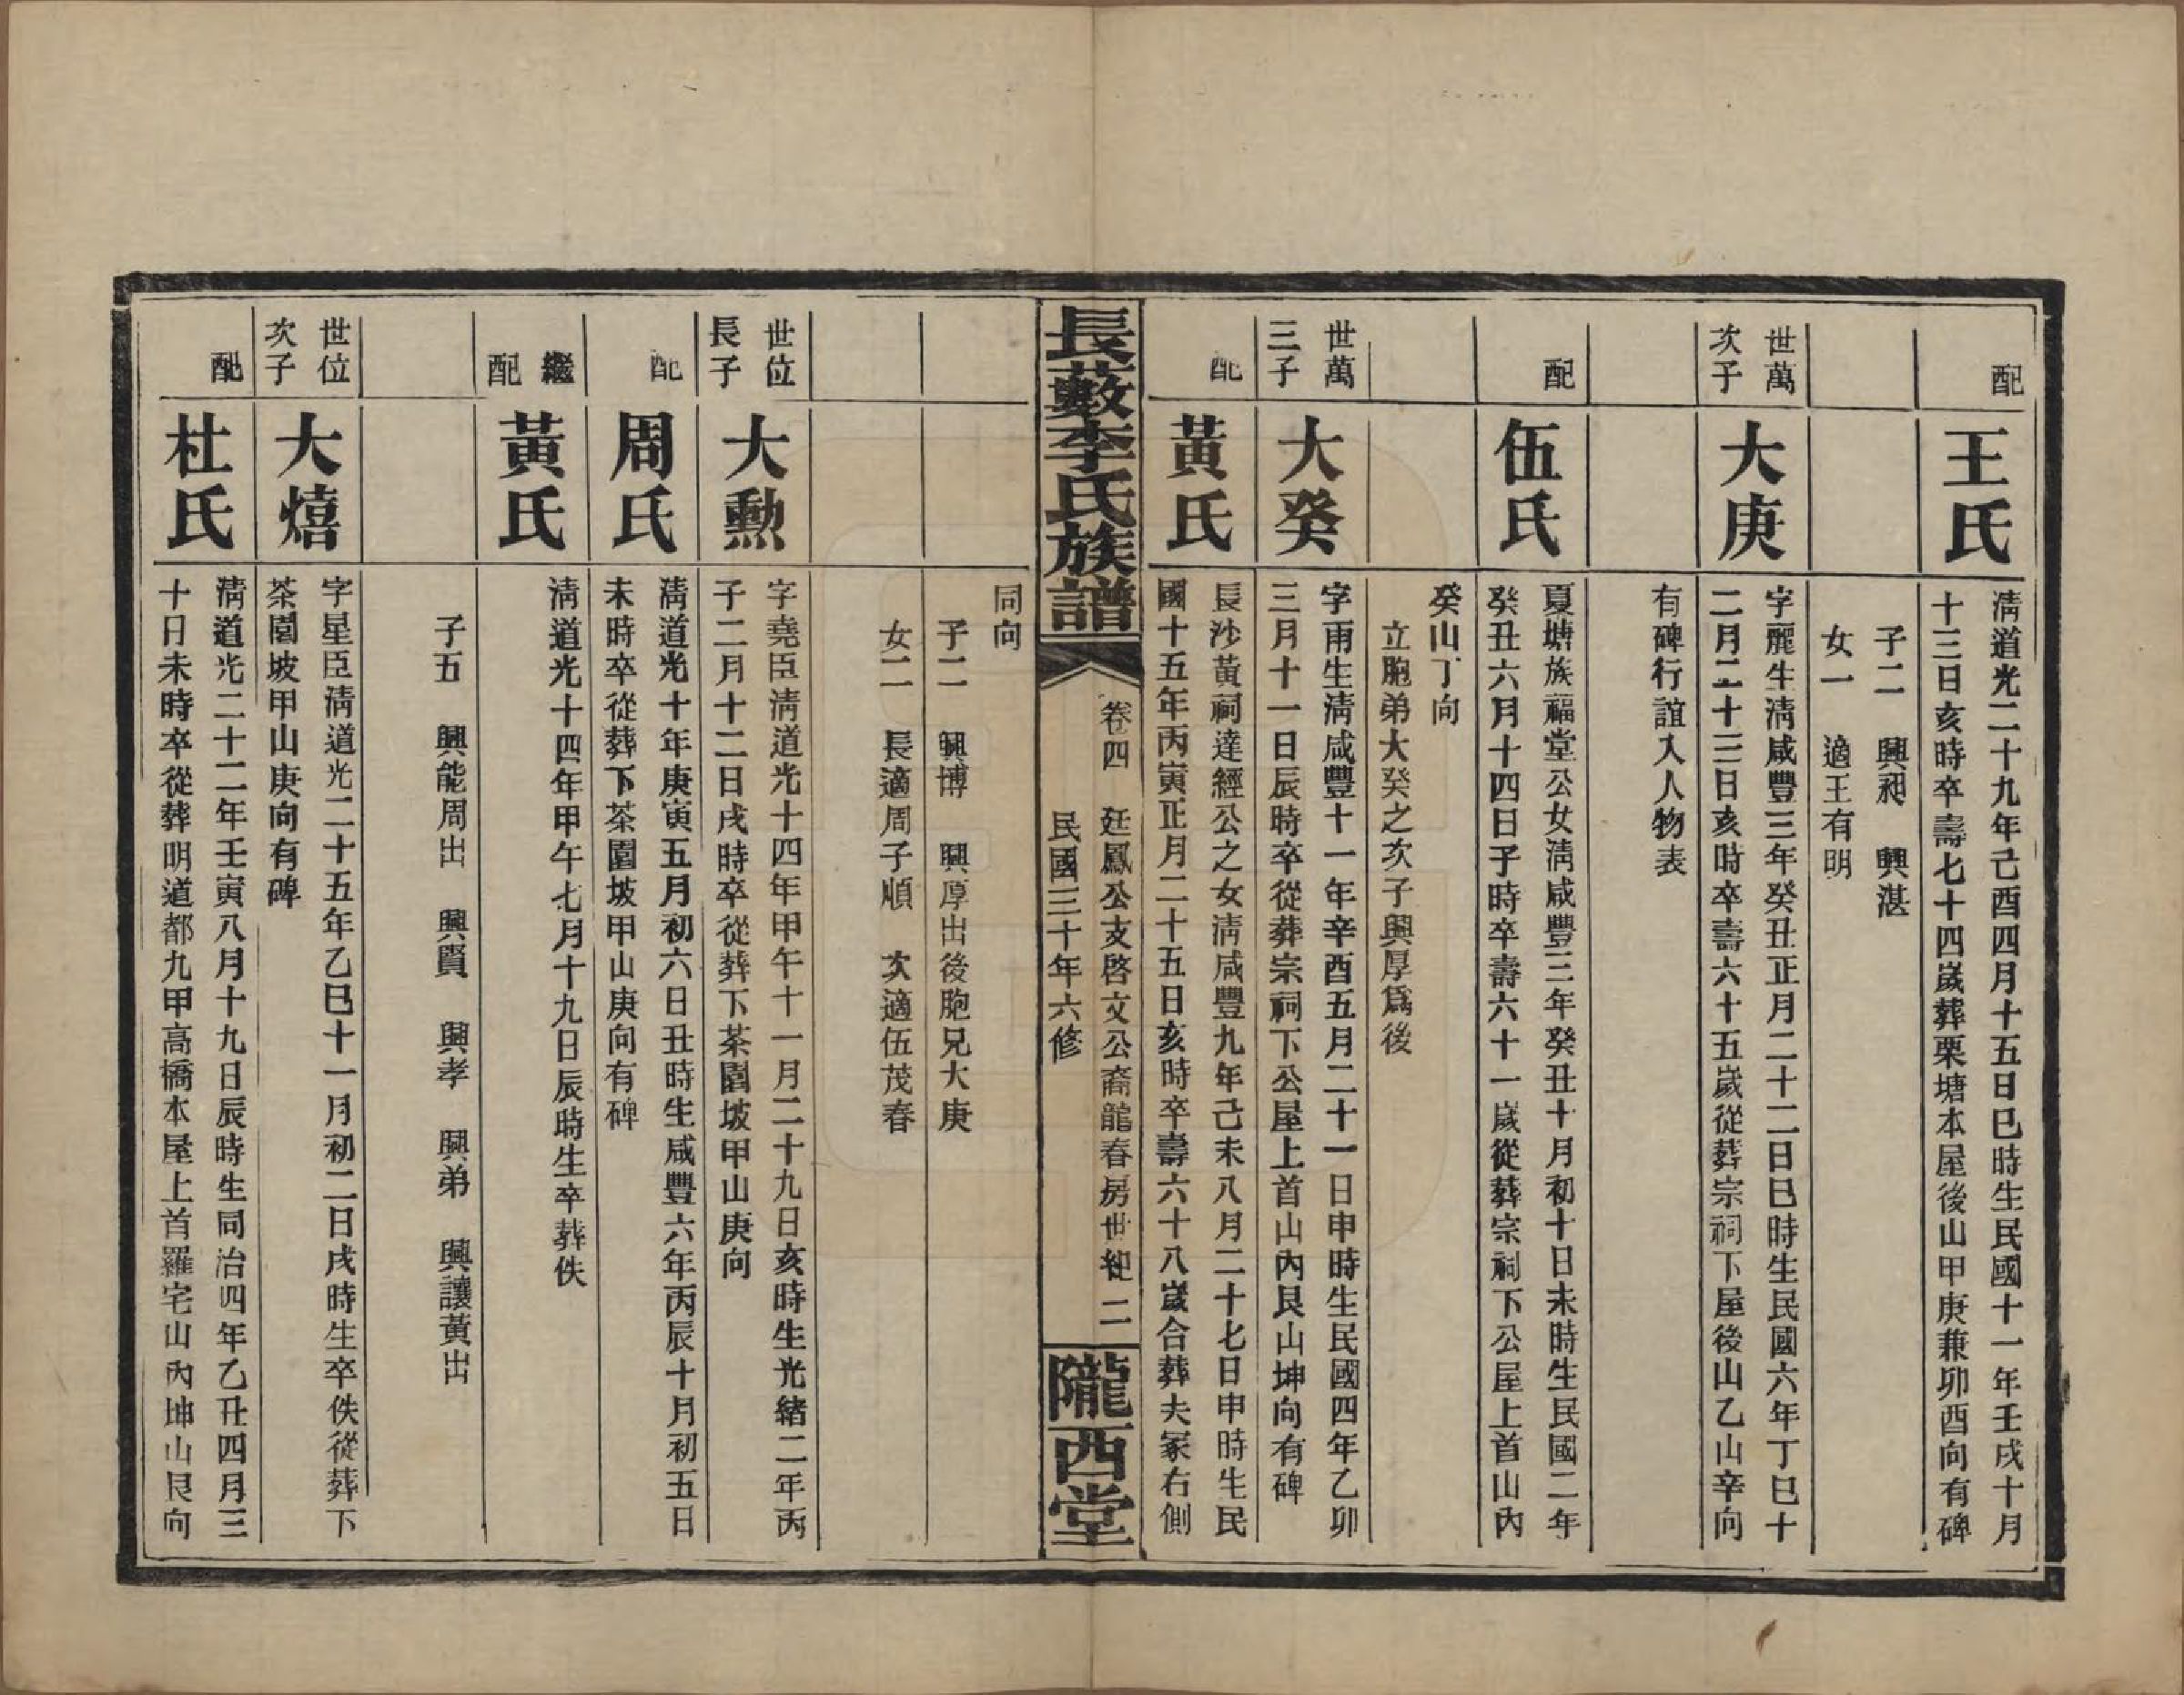 配
王氏
清道光二十九年己酉四月十五日巳時生民國十一年壬戌十月
十三日亥時卒壽七十四歲葬栗塘本屋後山甲庚兼卯酉向有碑
子二　興昶　興湛
女一　適王有明
世萬
次子
大庚
字麗生清咸豐三年癸丑正月二十二日巳時生民國六年丁巳十
二月二十三日亥時卒壽六十五歲從葬宗祠下屋後山乙山辛向
有碑行誼入人物表
配
伍氏
夏塘族福堂公女清咸豐三年癸丑十月初十日未時生民國二年
癸丑六月十四日子時卒壽六十一歲從葬宗祠下公屋上首山內
癸山丁向
立胞弟大癸之次子興厚爲後
世萬
三子
大癸
字雨生清咸豐十一年辛酉五月二十一日申時生民國四年乙卯
三月十一日辰時卒從葬宗祠下公屋上首山內艮山坤向有碑
配
黃氏
長沙黃祠達經公之女清咸豐九年己未八月二十七日申時生民
國十五年丙寅正月二十五日亥時卒壽六十八歲合葬夫冢右側
長薮李氏族譜
卷四　廷鳳公支啓文公裔龍春房世紀　二
民國三十年六修
隴西堂
同向
子二　興博　興厚出後胞兄大庚
女二　長適周子順　次適伍茂春
世位
長子
大勲
字堯臣清道光十四年甲午十一月二十九日亥時生光緒二年丙
子二月十二日戌時卒從葬下茶園坡甲山庚向
配
周氏
清道光十年庚寅五月初六日丑時生咸豐六年丙辰十月初五日
未時卒從葬下茶園坡甲山庚向有碑
繼
配
黃氏
清道光十四年甲午七月十九日辰時生卒葬佚
子五　興能周出　興賢　興孝　興弟　興讓黃出
世位
次子
大熺
字星臣清道光二十五年乙巳十一月初二日戌時生卒佚從葬下
茶園坡甲山庚向有碑
配
杜氏
清道光二十二年壬寅八月十九日辰時生同治四年乙丑四月三
十日未時卒從葬明道都九甲高橋本屋上首羅宅山內坤山艮向